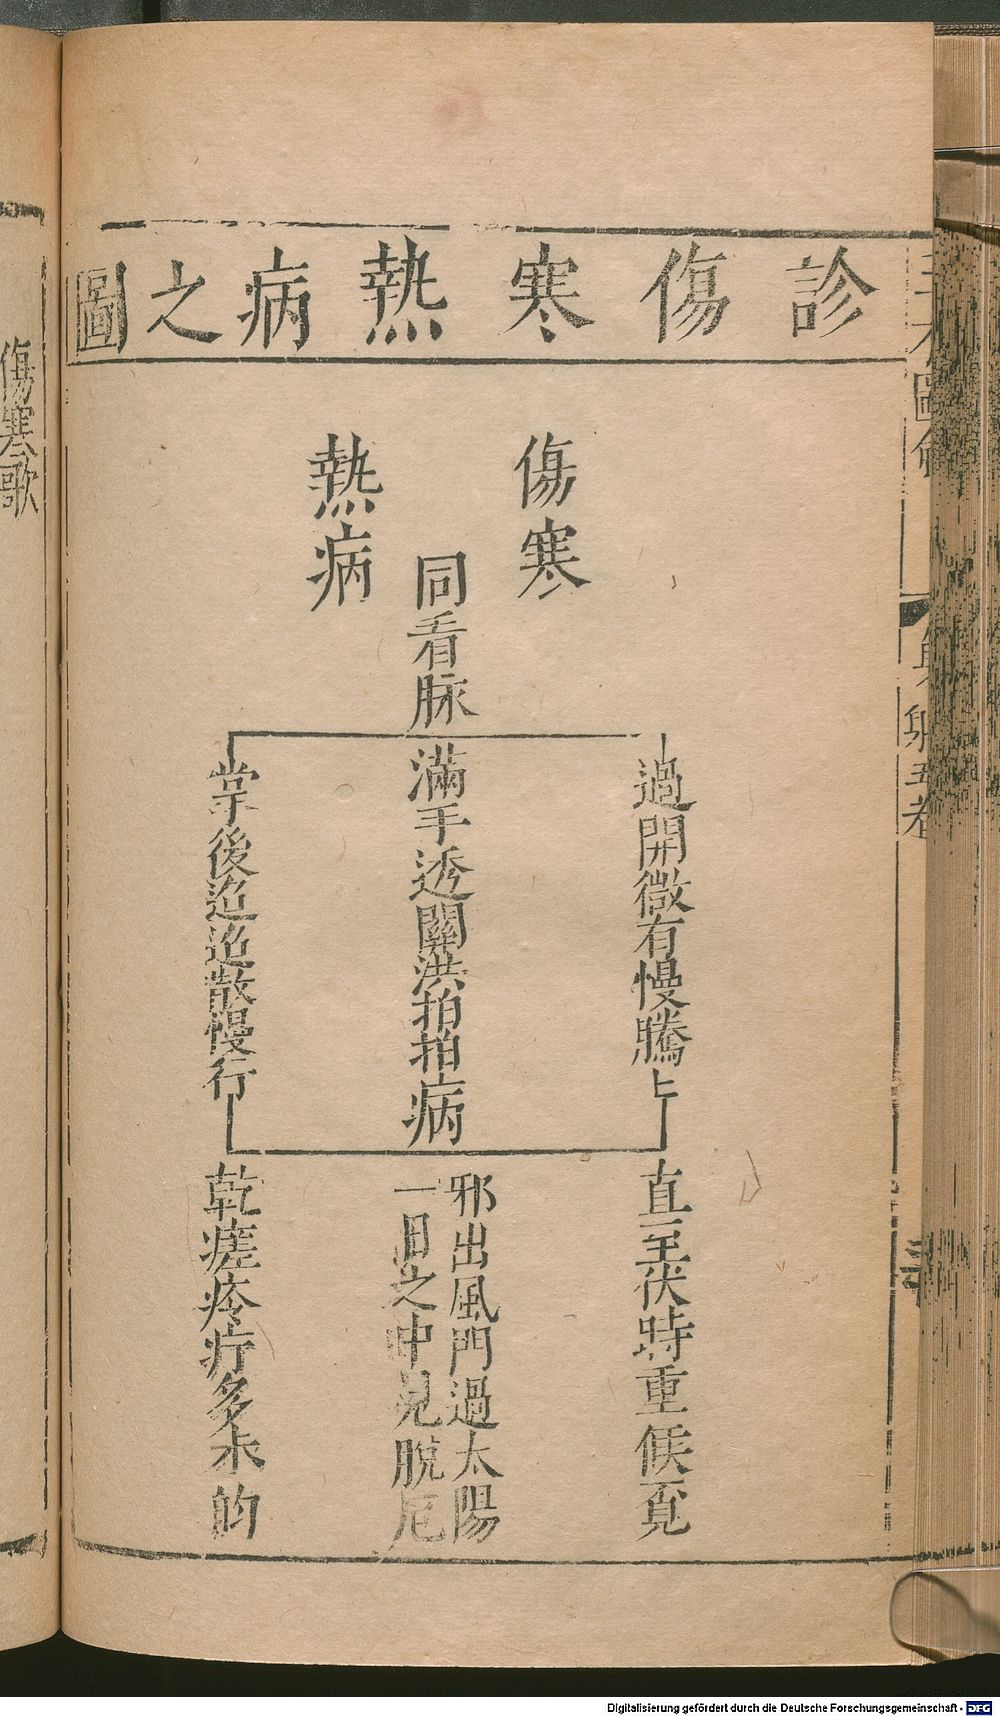 診傷寒熱病之圖
傷寒
熱病
同看脉
過開微有慢騰上
滿手透關洪拍拍病
掌後迢迢散慢行
直至伏時重候覓
邪出風門過太陽
一日之中見脫厄
乾瘥疼疔多未的
五卷
傷寒歌
Digitalisierung gefördert durch die Deutsche Forschungsgemeinschaft - DFG